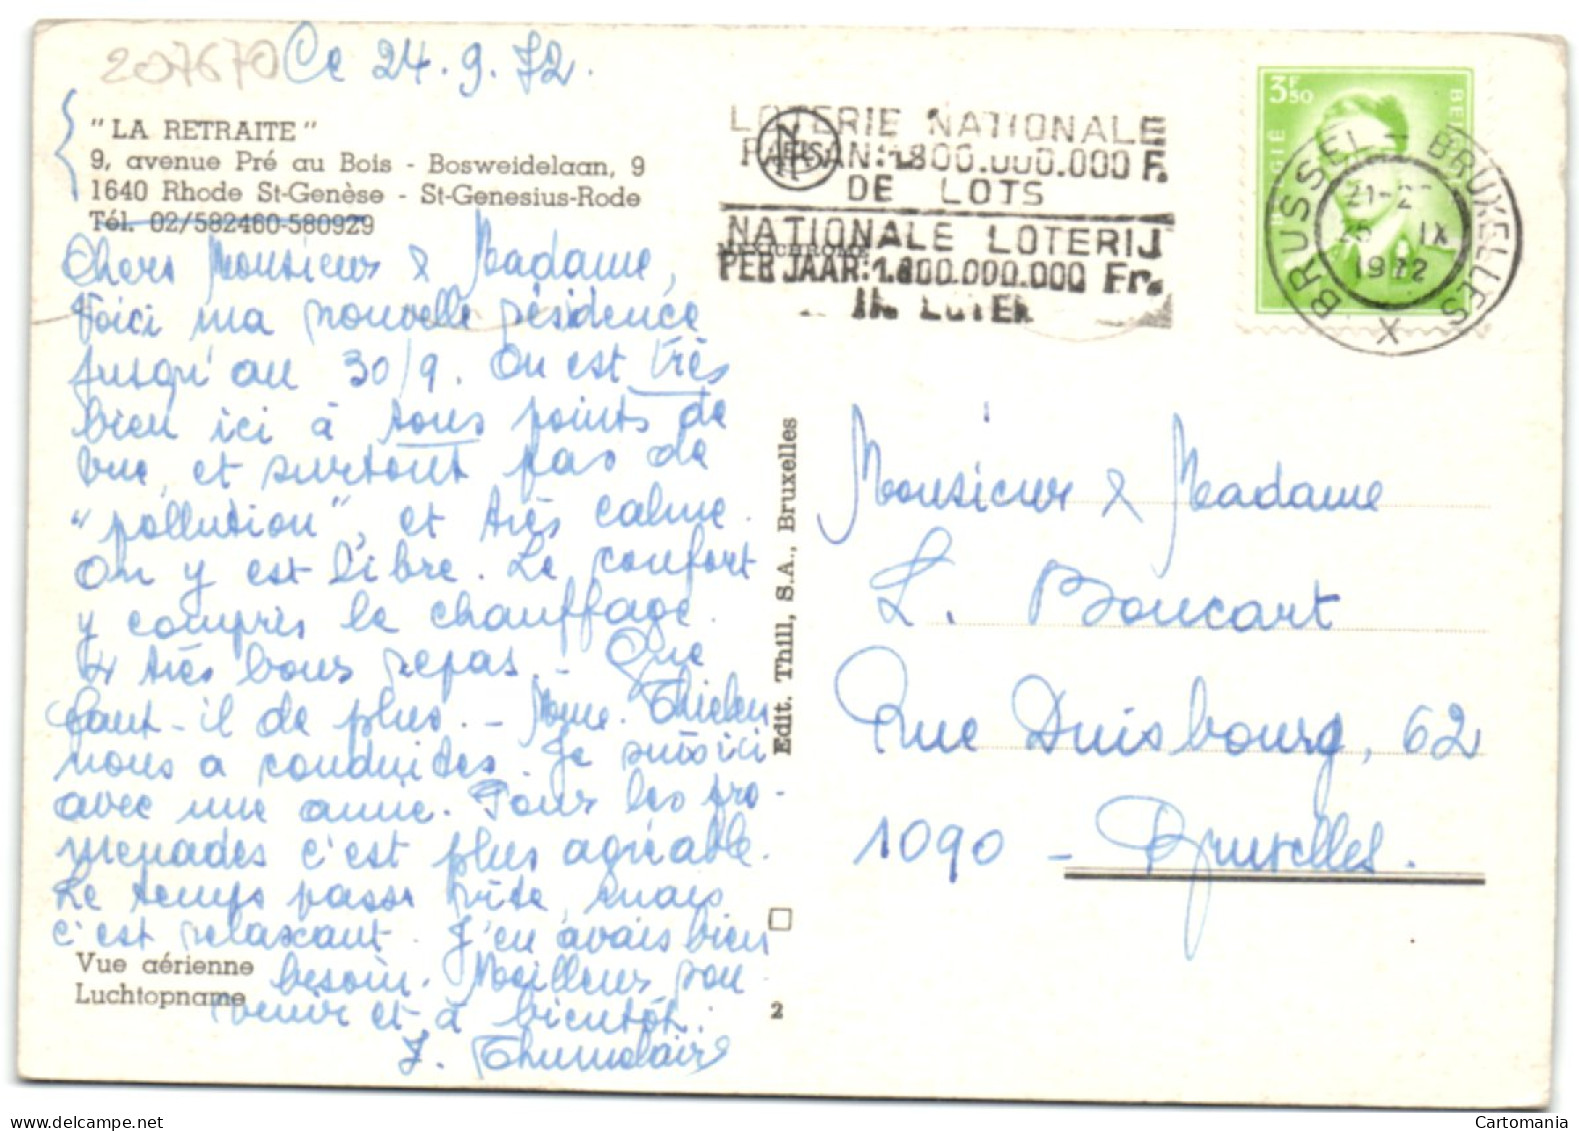 207670 Ce 24.9.72.
"LA RETRAITE"
9, avenue Pré au Bois - Bosweidelaan, 9
1640 Rhode St-Genèse - St-Genesius-Rode
Tél. 02/582460-580929
Chers Monsieur & Madame,
Voici ma nouvelle résidence
jusqu'au 30/9. On est très
bien ici à tous points de
vue, et surtout pas de
"pollution", et très calme.
On y est libre. Le confort
y compris le chauffage.
& très bons repas. Que
faut-il de plus. - Mme. Thielen
nous a conduites. Je suis ici
avec une amie. Pour les pro-
menades c'est plus agréable.
Le temps passe vite, mais
c'est relaxant. J'en avais bien
besoin. Meilleur sou
venir et à bientôt.
J.
Vue aérienne
Luchtopname
Edit. Thill, S.A., Bruxelles
2
LOTERIE NATIONALE
PAR AN: 1.800.000.000 F.
DE LOTS
NATIONALE LOTERIJ
PER JAAR: 1.800.000.000 Fr.
IN LOTEN
3F50
BELGIE
BRUSSEL - BRUXELLES
IX
1972
X
Monsieur & Madame
L. Boucart
Rue Duisbourg, 62
1090 - Bruxelles.
delcampe.net
Cartomania